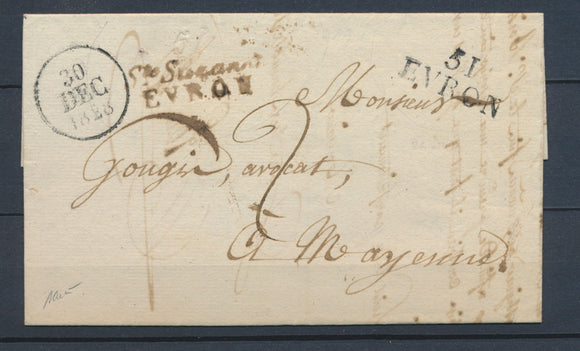 30
DEC
1828
Ste Suzanne
EVRON
51
EVRON
Monsieur
Gougis, avocat,
2
à Mayenne